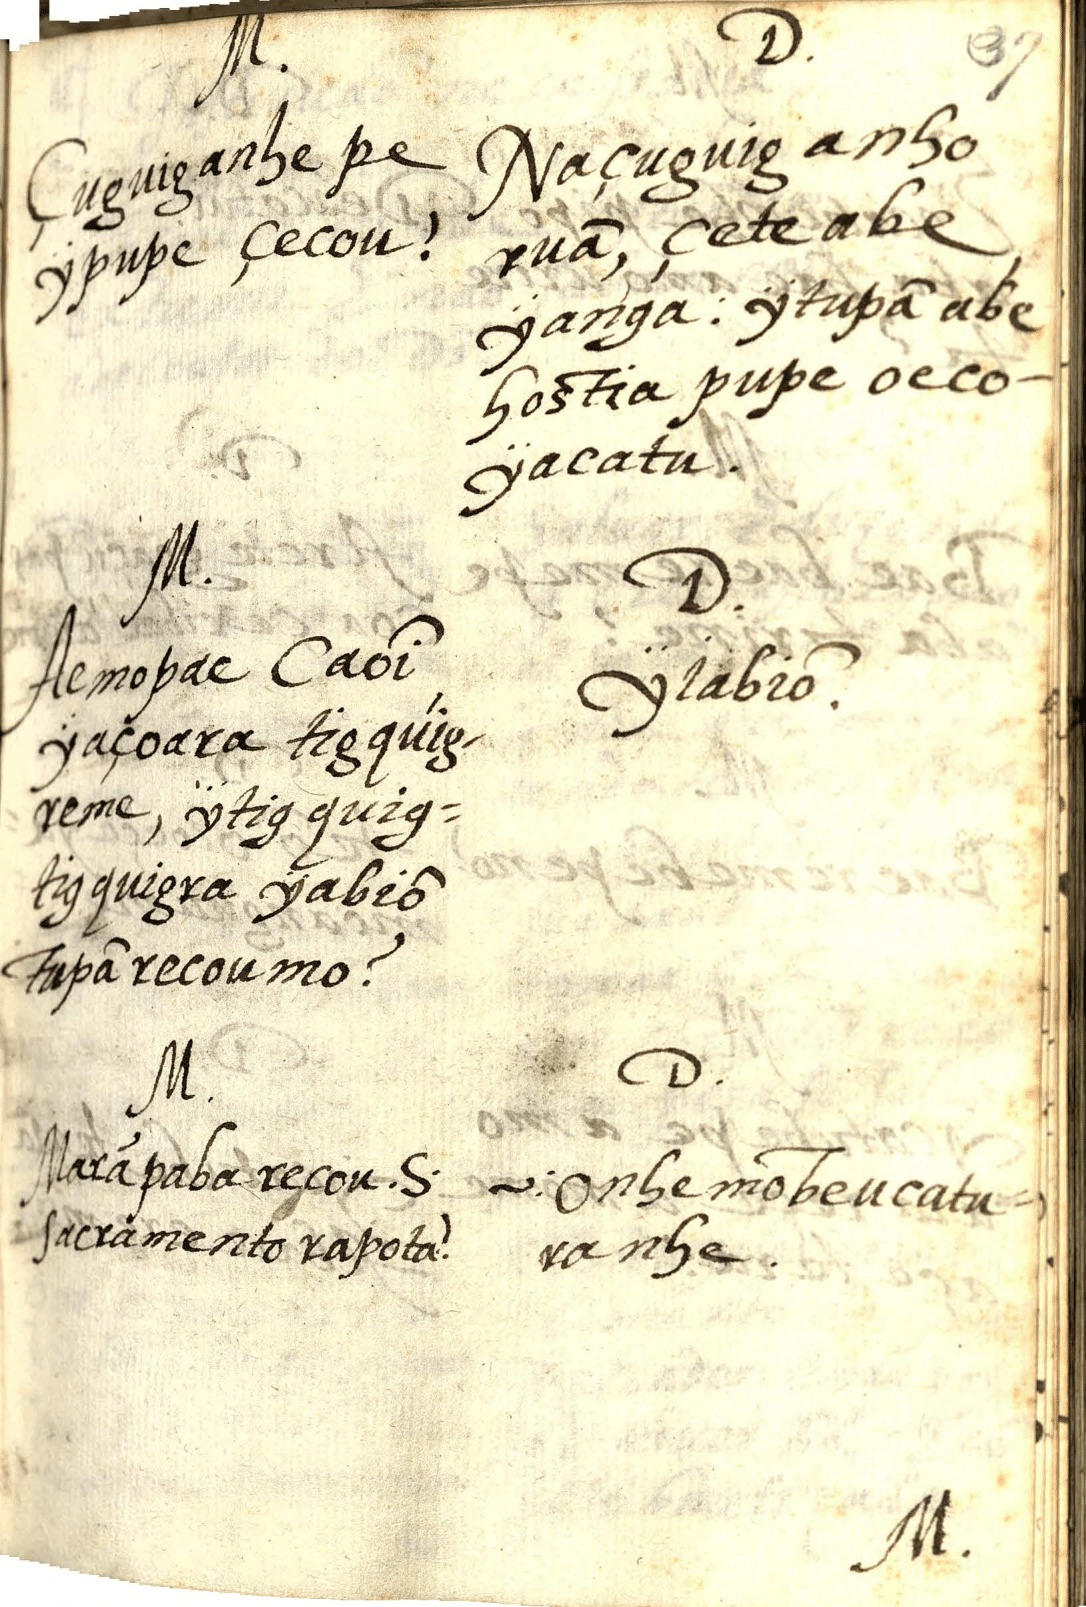 37
M.
Çuguiganhe pe
ÿpupe çecou?
D.
Naçuguig anho
ruã, çete abe
ÿanga: ÿtupã abe
hostia pupe oeco-
ÿacatu.
M.
Aemopae Caoĩ
ÿaçoara tigquig-
reme, ÿtig quig=
tigquigra ÿabiõ
tupã recou mo?
D.
ÿiabiõ.
M.
Marãpaba recou. S.
Sacramento rapota?
D.
~: Onhemõbeucatu=
ranhe.
M.